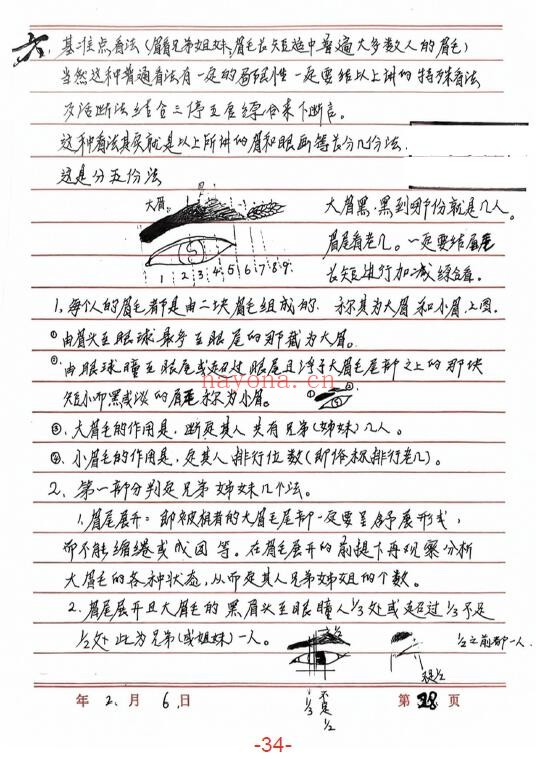 六、基准点看法（眉看兄弟姐妹，眉毛长短适中普遍大多数人的眉毛）
当然这种普通看法有一定的局限性一定要结以上讲的特殊看法
及活断法结合三停五岳综合来下断言。
这种看法其实就是以上所讲的眉和眼画等长分几份法。
这是分五份法
大眉
1 2 3 4 5 6 7 8 9
大眉黑，黑到哪份就是几人。
眉尾看老几。一定要结眉尾
长短进行加减综合看。
1，每个人的眉毛都是由二块眉毛组成的．称其为大眉和小眉，上图．
①由眉头至眼球 至眼尾的那截为大眉。
②由眼球瞳至眼尾或超过眼尾且浮于大眉毛尾部之上的那块
短小即黑或淡的眉毛称为小眉。
nayona.cn
③．大眉毛的作用是．断定其人共有兄弟（姊妹）几人。
④．小眉毛的作用是．定其人排行位数（即俗称排行老几）。
2．第一部分判定兄弟姊妹几个法。
1，眉尾展开：即被相者的大眉毛尾部一定要呈舒展形式，
而不能缩卷或成团等．在眉毛展开的前提下再观察分析
大眉毛的各种状态，从而定其人兄弟姊姐的个数．
2．眉尾展开且大眉毛的黑眉头至眼瞳人1/3处或超过1/3不足
1/2处 此为兄弟（或姐妹）一人。
1/2之前都一人．
1/3 不足 1/2
不足1/2
年 2 月 6 日
第 28 页
-34-